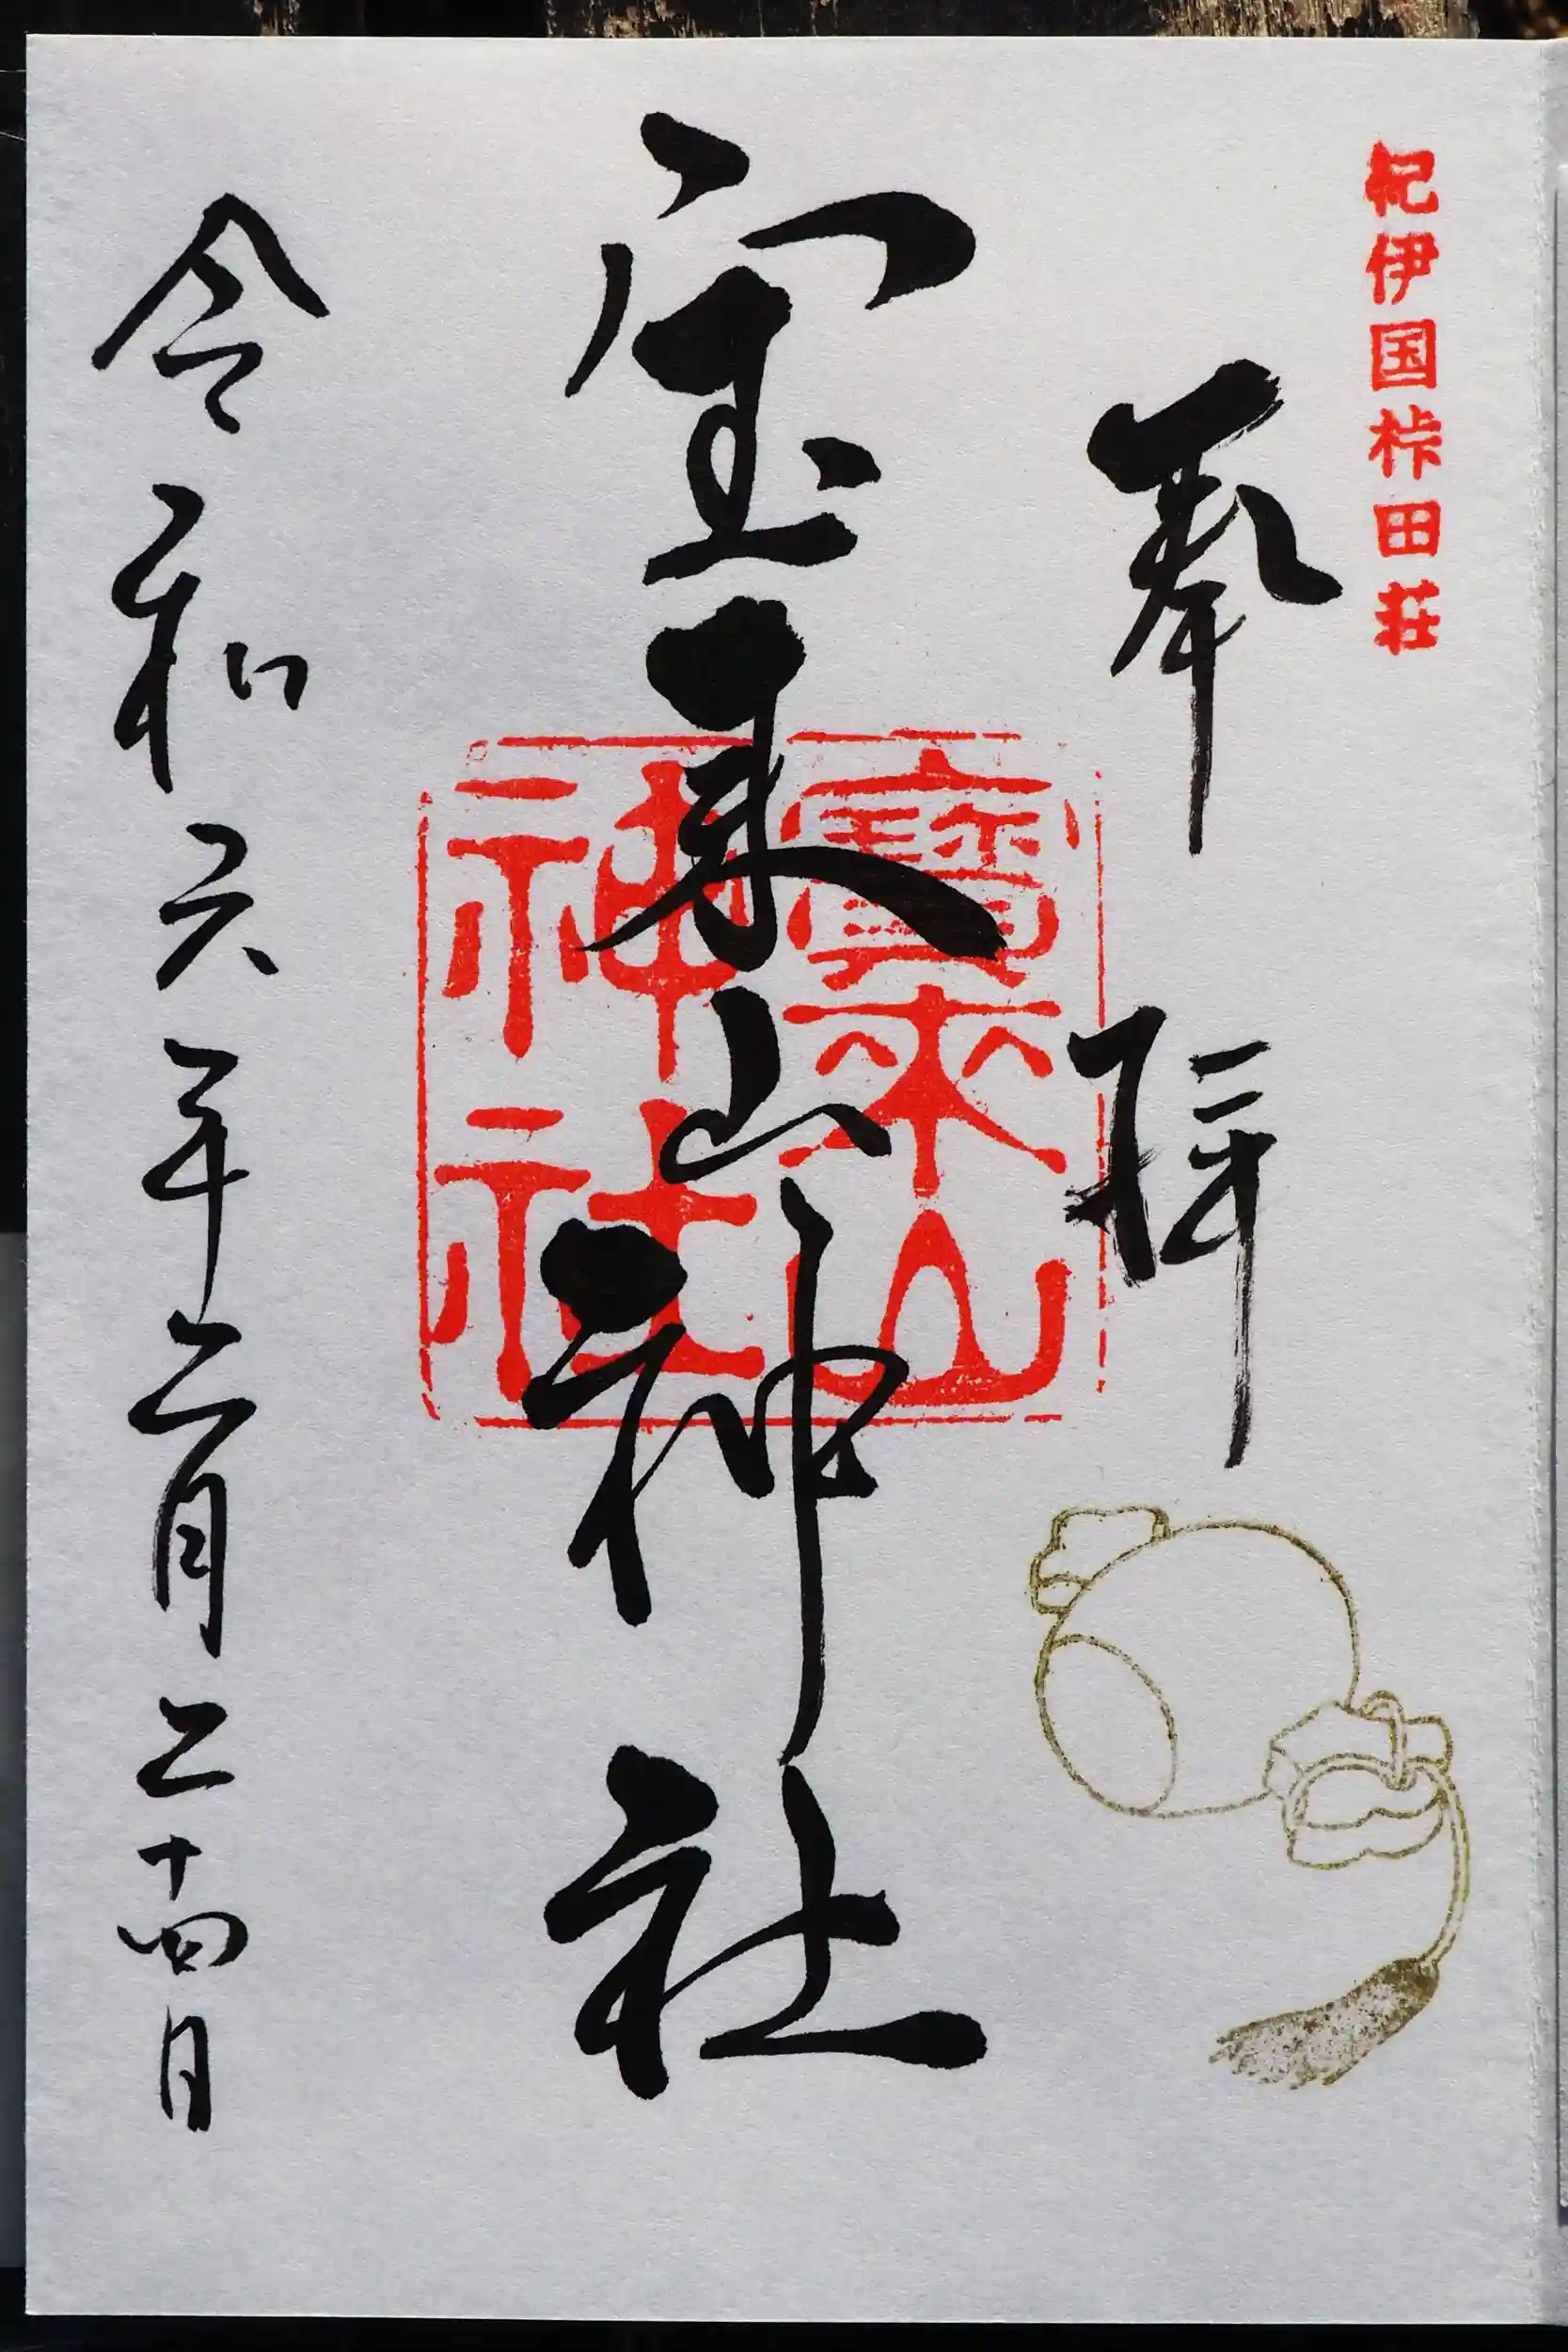 紀伊国桛田荘
奉拝
宝来山神社
寶來山
神社
令和六年二月二十四日